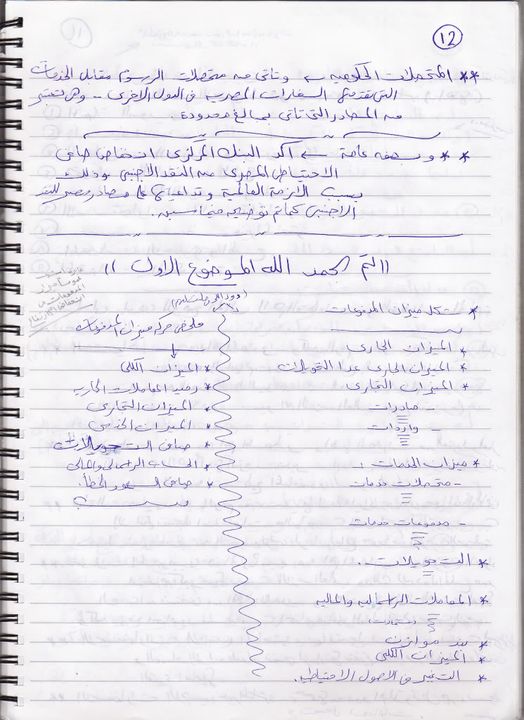 12
** المتحصلات الحكومية ← وتأتى من متحصلات الرسوم مقابل الخدمات
التى تقدمها السفارات المصرية فى الدول الأخرى - وهى تعتبر
من المصادر التى تأتى بمبالغ محدودة.
** وبصفه عامة ← أكد البنك المركزى انخفاض صافى
الاحتياطى المصرى من النقد الأجنبى وذلك
بسبب الازمة العالمية وتداعياتها على مصادر مصر للنقد
الأجنبى كما تم توضيحه فيما سبق.
((تم الحمد الله الموضوع الاول))
* شكل ميزان المدفوعات
* الميزان الجارى
* الميزان الجارى عدا التحويلات
* الميزان التجارى
- صادرات
- واردات
* ميزان الخدمات :
- متحصلات خدمات
- مدفوعات خدمات
* التحويلات.
* المعاملات الرأسمالية والمالية
* بند موازن
* الميزان الكلى
* التغير فى الاصول الاحتياطية.
ملخص حركة ميزان المدفوعات
* الميزان الكلى
* رصيد المعاملات الجارية
* الميزان التجارى
* الميزان الخدمى
* صافى التحويلات
* الحساب الرأسمالى والمالى
* صافى السهو والخطأ.